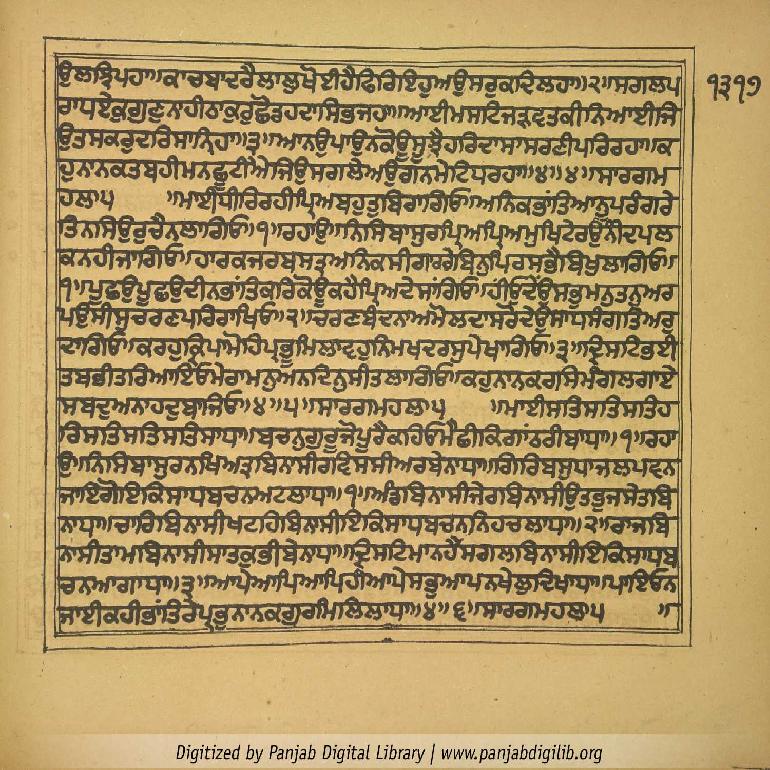 ਉਲਝਿਪਹਾ॥ਕਾਚਬਾਦਰੈਲਾਲੁਖੋਈਹੈਫਿਰਿਇਹੁਅਉਸਰੁਕਦਿਲਹਾ॥੨॥ਸਗਲਪ
ਰਾਧਏਕੁਗੁਣੁਨਾਹੀਠਾਕੁਰੁਛੋਡਹਦਾਸਿਭਜਹਾ॥ਆਈਮਸਟਿਜੜਵਤਕੀਨਿਆਈਜਿ
ਉਤਸਕਰੁਦਰਿਸਾਨਿਹਾ॥੩॥ਆਨਉਪਾਉਨਕੋਊਸੂਝੈਹਰਿਦਾਸਾਸਰਣੀਪਰਿਰਹਾ॥ਕ
ਹੁਨਾਨਕਤਬਹੀਮਨਛੁਟੀਐਜਿਉਸਗਲੇਅਉਗਨਮੇਟਿਧਰਹਾ॥੪॥੪॥ਸਾਰਗਮ
ਹਲਾ੫ ॥ਮਾਈਧੀਰਿਰਹੀਪ੍ਰਿਅਬਹੁਤੁਬਿਰਾਗਿਓ॥ਅਨਿਕਭਾਂਤਿਆਨੂਪਰੰਗਰੇ
ਤਿਨਸਿਉਰੁਚੈਨਲਾਗਿਓ॥੧॥ਰਹਾਉ॥ਨਿਸਿਬਾਸੁਰਪ੍ਰਿਅਪ੍ਰਿਅਮੁਖਿਟੇਰਉਨੀਦਪਲ
ਕਨਹੀਜਾਗਿਓ॥ਹਾਰਕਜਰਬਸਤ੍ਰਅਨਿਕਸੀਗਾਰਰੇਬਿਨੁਪਿਰਸਭੈਬਿਖੁਲਾਗਿਓ॥
੧॥ਪੂਛਉਪੂਛਉਦੀਨਭਾਂਤਿਕਰਿਕੋਊਕਹੈਪ੍ਰਿਅਦੇਸਾਂਗਿਓ॥ਹੀਓਦੇਂਉਸਭੁਮਨੁਤਨੁਅਰ
ਪਉਸੀਸੁਚਰਣਪਰਿਰਾਖਿਓ॥੨॥ਚਰਣਬੰਦਨਾਅਮੋਲਦਾਸਰੋਦੇਂਉਸਾਧਸੰਗਤਿਅਰ
ਦਾਗਿਓ॥ਕਰਹੁਕ੍ਰਿਪਾਮੋਹਿਪ੍ਰਭੂਮਿਲਾਵਹੁਨਿਮਖਦਰਸੁਪੇਖਾਗਿਓ॥੩॥ਦ੍ਰਿਸਟਿਭਈ
ਤਬਭੀਤਰਿਆਇਓਮੇਰਾਮਨੁਅਨਦਿਨੁਸੀਤਲਾਗਿਓ॥ਕਹੁਨਾਨਕਰਸਿਮੰਗਲਗਾਏ
ਸਬਦੁਅਨਾਹਦੁਬਾਜਿਓ॥੪॥੫॥ਸਾਰਗਮਹਲਾ੫ ॥ਮਾਈਸਤਿਸਤਿਸਤਿਹ
ਰਿਸਤਿਸਤਿਸਤਿਸਾਧਾ॥ਬਚਨੁਗੁਰੂਜੋਪੂਰੈਕਹਿਓਮੈਛੀਕਿਗਾਂਠਰੀਬਾਧਾ॥੧॥ਰਹਾ
ਉ॥ਨਿਸਿਬਾਸੁਰਨਖਿਅਤ੍ਰਬਿਨਾਸੀਰਵਿਸਸੀਅਰਬੇਨਾਧਾ॥ਗਿਰਿਬਸੁਧਾਜਲਪਵਨ
ਜਾਇਗੋਇਕਿਸਾਧਬਚਨਅਟਲਾਧਾ॥੧॥ਅੰਡਬਿਨਾਸੀਜੇਰਬਿਨਾਸੀਉਤਭੁਜਸੇਤਬਿ
ਨਾਧਾ॥ਚਾਰਿਬਿਨਾਸੀਖਟਹਿਬਿਨਾਸੀਇਕਿਸਾਧਬਚਨਨਿਹਚਲਾਧਾ॥੨॥ਰਾਜਬਿ
ਨਾਸੀਤਾਮਬਿਨਾਸੀਸਾਤਕੁਭੀਬੇਨਾਧਾ॥ਦ੍ਰਿਸਟਿਮਾਨਹੈਸਗਲਬਿਨਾਸੀਇਕਿਸਾਧਬ
ਚਨਆਗਾਧਾ॥੩॥ਆਪੇਆਪਿਆਪਿਹੀਆਪੇਸਭੁਆਪਨਖੇਲੁਦਿਖਾਧਾ॥ਪਾਇਓਨ
ਜਾਈਕਹੀਭਾਂਤਿਰੇਪ੍ਰਭੁਨਾਨਕਗੁਰਮਿਲਿਲਾਧਾ॥੪॥੬॥ਸਾਰਗਮਹਲਾ੫ ॥
੧੩੧੭
Digitized by Panjab Digital Library | www.panjabdigilib.org